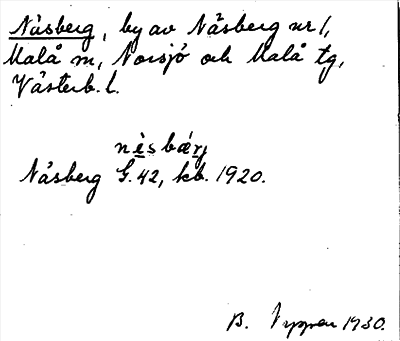 Näsberg, by av Näsberg nr 1,
Malå sn, Norsjö och Malå tg,
Västerb. l.
nèsbærj
Näsberg G.42, kb. 1920.
B. 1930.